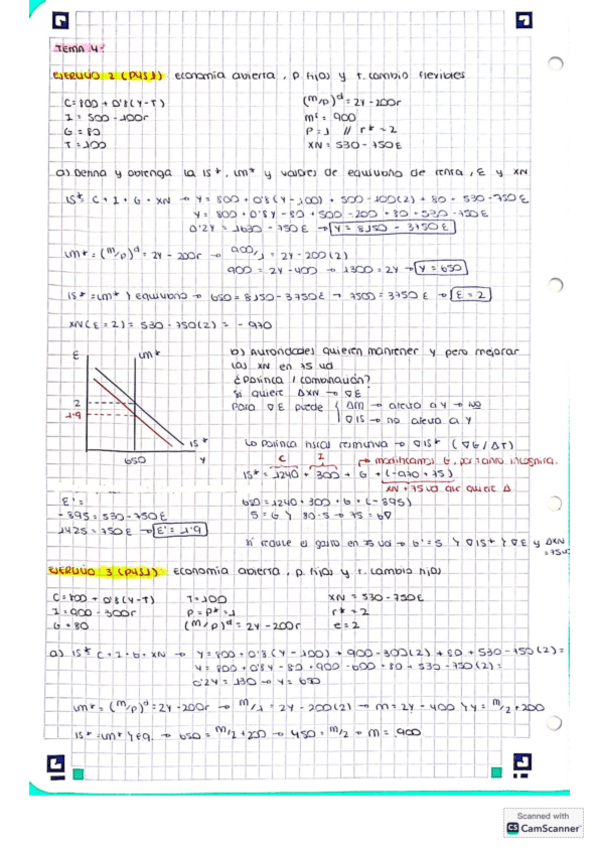 TEMA 4:
EJERCICIO 2 (P4S1) economía abierta, p. fijos y t. cambio flexibles
C = 800 + 0'8(Y-T)
(M/P)^d = 2Y - 200r
I = 500 - 100r
M^s = 900
G = 80
P = 1 // r* = 2
T = 100
XN = 530 - 750E
a) Defina y obtenga la IS*, LM* y valores de equilibrio de renta, E y XN
IS*: C + I + G + XN → Y = 800 + 0'8(Y-100) + 500 - 100(2) + 80 + 530 - 750E
Y = 800 + 0'8Y - 80 + 500 - 200 + 80 + 530 - 750E
0'2Y = 1630 - 750E → Y = 8150 - 3750E
LM* = (M/P)^d = 2Y - 200r → 900/1 = 2Y - 200(2)
900 = 2Y - 400 → 1300 = 2Y → Y = 650
IS* = LM* } equilibrio → 650 = 8150 - 3750E → 7500 = 3750E → E = 2
XN(E=2) = 530 - 750(2) = -970
E
LM*
2
1.9
IS*
650
Y
b) Autoridades quieren mantener Y pero mejorar
las XN en 75 ud
¿Política / combinación?
Si quiere ΔXN → ∇E
Para ∇E puede { ΔM → afecta a Y → NO
∇IS → no afecta a Y
La política fiscal restrictiva → ∇IS* (∇G / ΔT)
C I → modificamos G, por tanto incógnita.
IS* = 1240 + 300 + G + (-970 + 75)
XN + 75 ud que quiere Δ
E':
-895 = 530 - 750E
1425 = 750E → E' = 1.9
650 = 1240 + 300 + G + (-895)
5 = G } 80 - 5 → 75 = G∇
Si reduce el gasto en 75 ud → G' = 5 } ∇IS* } ∇E y ΔXN
= 75 ud
EJERCICIO 3 (P4S1) economía abierta, p. fijos y t. cambio fijos
C = 800 + 0'8(Y-T)
T = 100
XN = 530 - 750E
I = 900 - 300r
P = P* = 1
r* = 2
G = 80
(M/P)^d = 2Y - 200r
e = 2
a) IS*: C + I + G + XN → Y = 800 + 0'8(Y-100) + 900 - 300(2) + 80 + 530 - 750(2) =
Y = 800 + 0'8Y - 80 + 900 - 600 + 80 + 530 - 750(2) =
0'2Y = 130 → Y = 650
LM* = (M/P)^d = 2Y - 200r → M/1 = 2Y - 200(2) → M = 2Y - 400 } Y = M/2 + 200
IS* = LM* } EQ. → 650 = M/2 + 200 → 450 = M/2 → M = 900
Scanned with
CS CamScanner